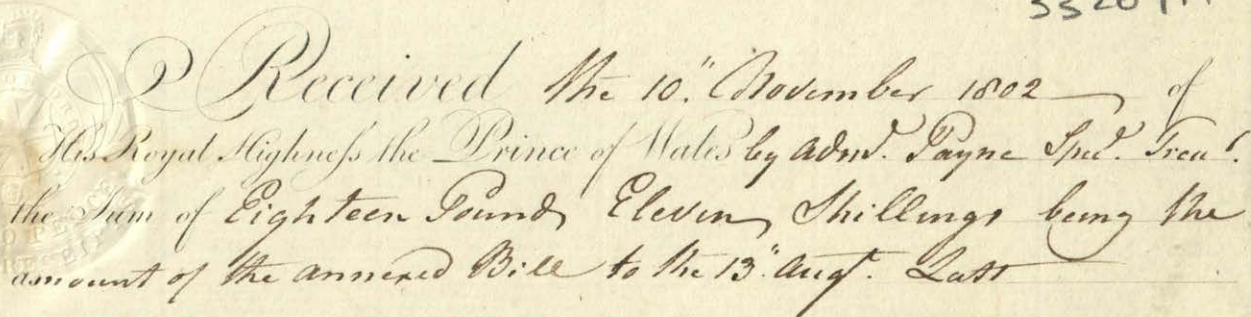 Received the 10" November 1802 of
His Royal Highneſs the Prince of Wales by Adm¹. Payne
the Sum of Eighteen Pounds Eleven Shillings being the
amount of the annexed Bill to the 13" Augt. Last